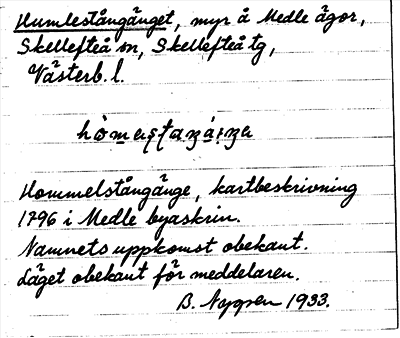 Humlestångänget, myr å Medle ägor,
Skellefteå sn, Skellefteå tg,
Västerb. l.
Hommelstångänge, kartbeskrivning
1796 i Medle byaskrin.
Namnets uppkomst obekant.
Läget obekant för meddelaren.
B. Nygren 1933.